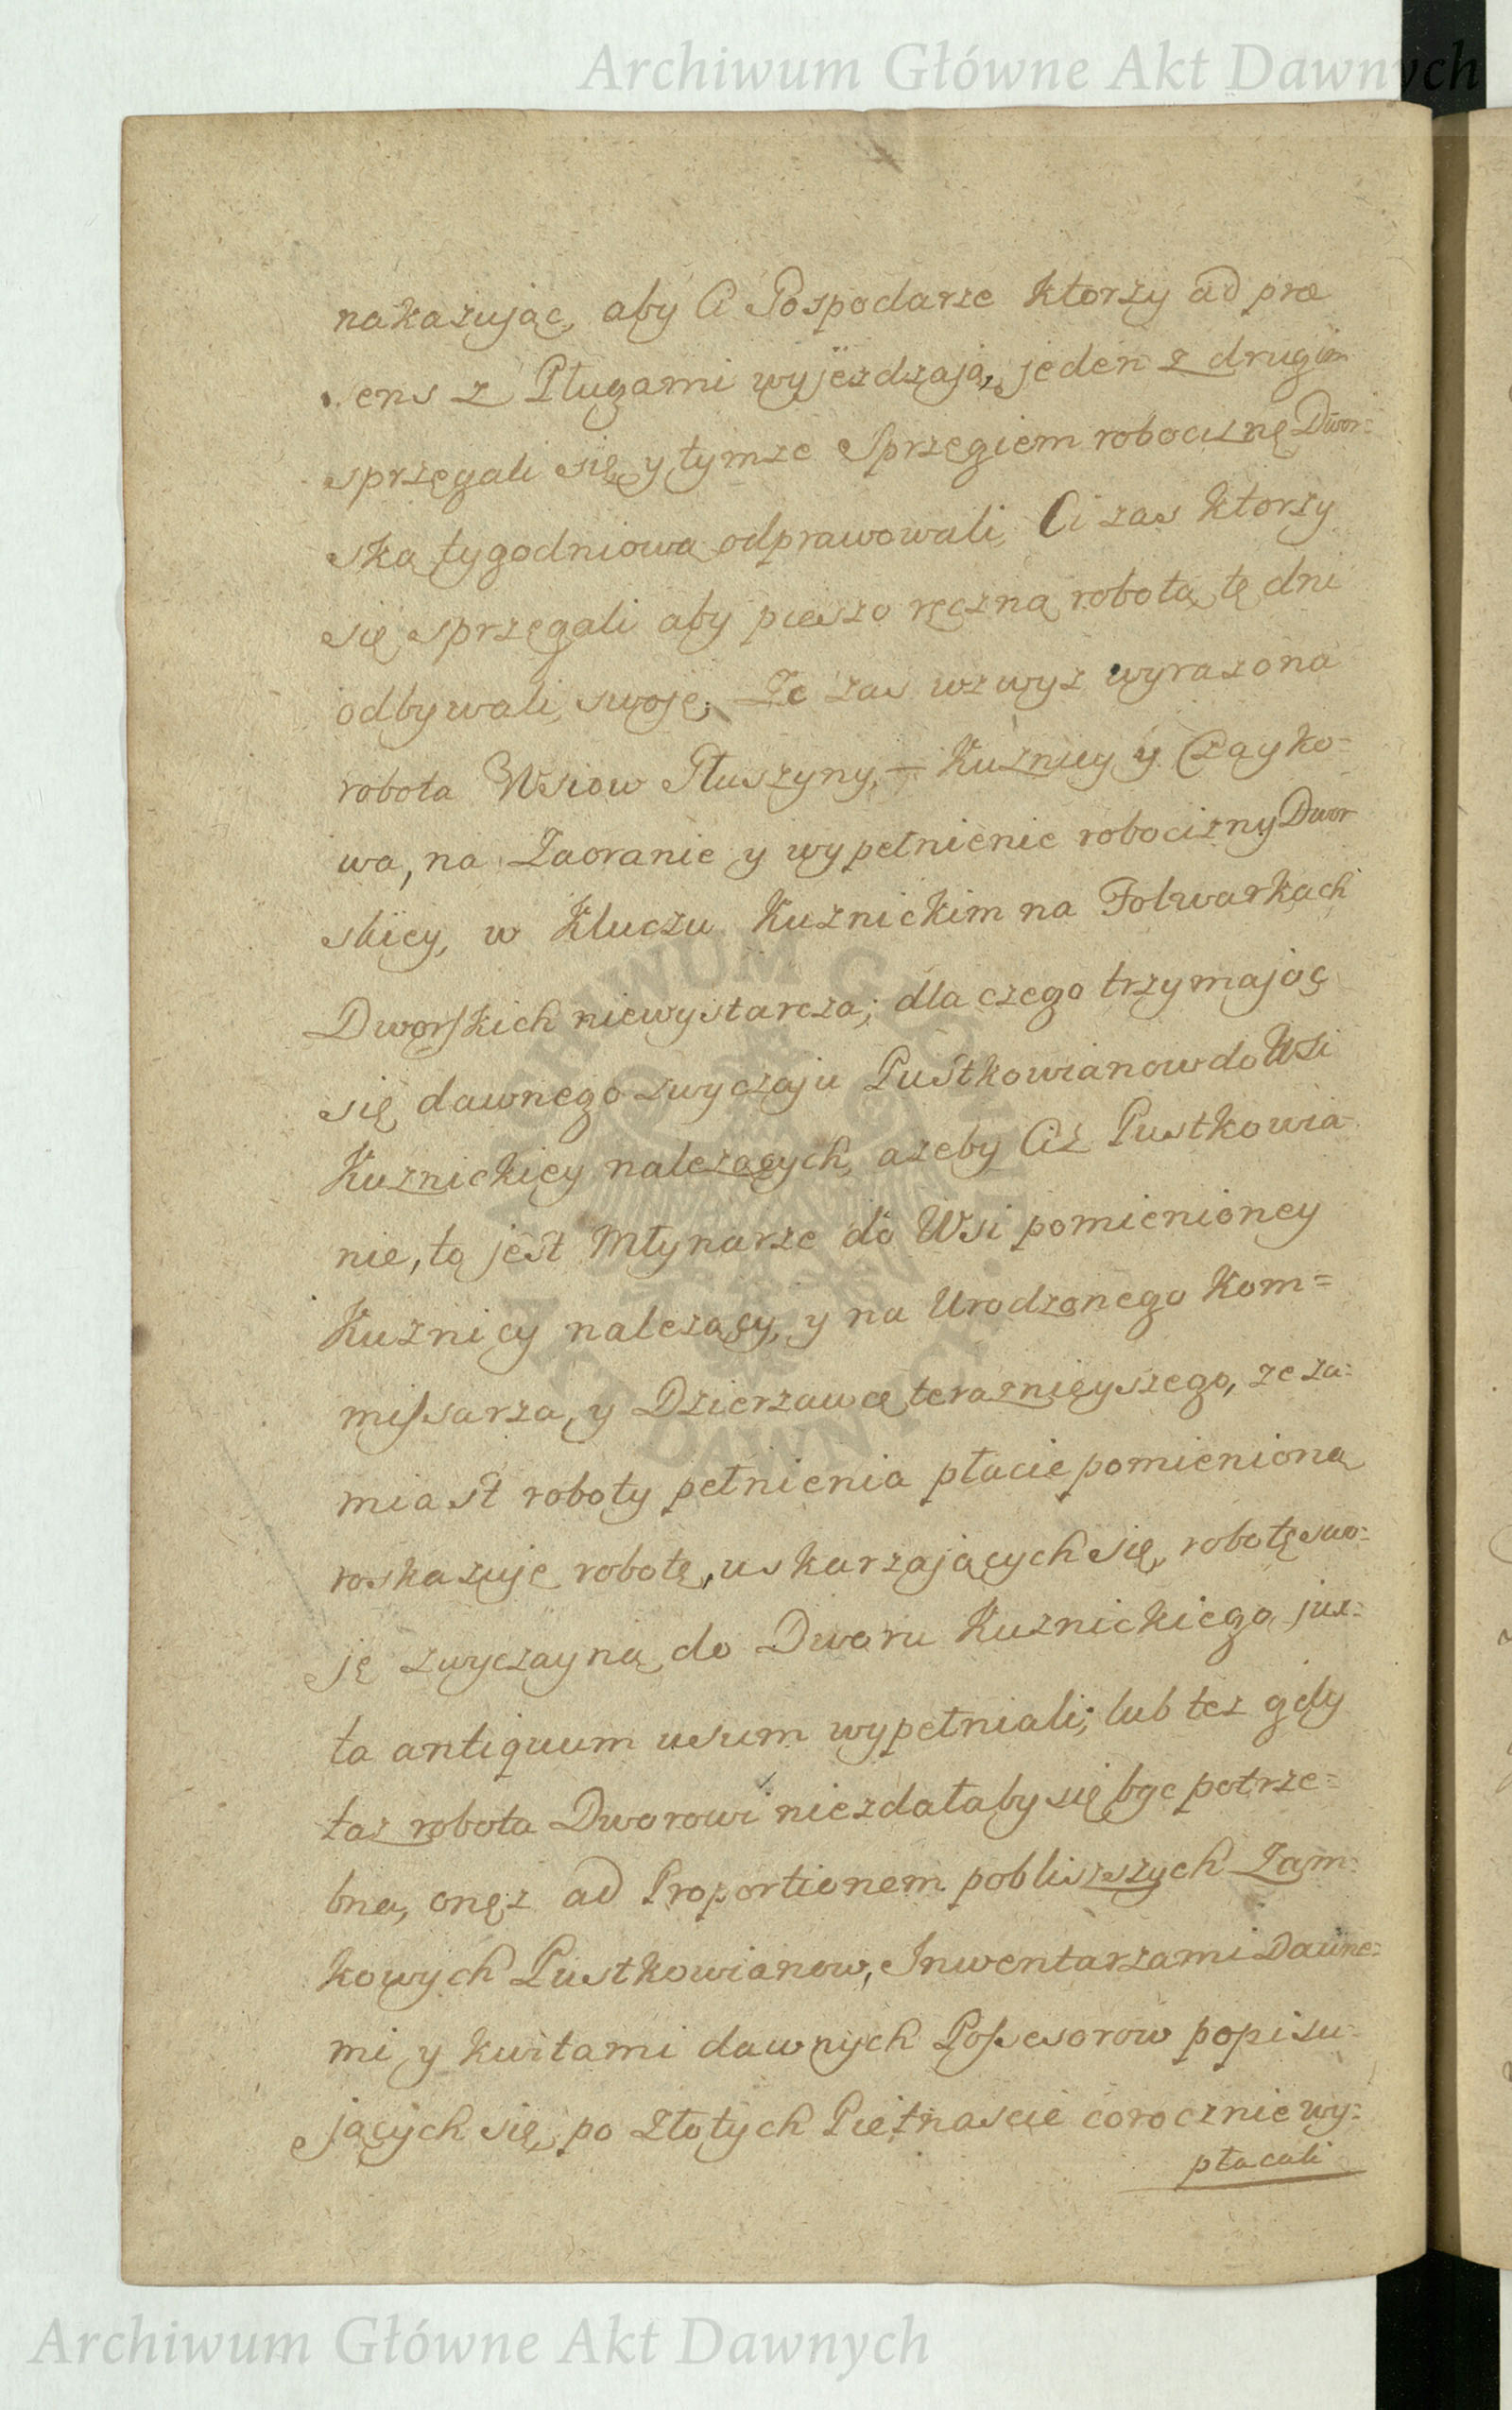 Archiwum Główne Akt Dawnych
nakazując, aby Ci Gospodarze ktorzy ad præ
sens z Pługami wyjezdzają, jeden z drugim
sprzęgali się, y tymze Sprzęgiem robociznę Dwor:
ską tygodniową odprawowali, Ci zas ktorzy
się sprzęgali aby pieszo ręczną robotą tę dni
odbywali, swoje; Ze zas wzwyz wyrazona
robota Wsiow Głuszyny, – Kuznicy y Czayko-
wa, na Zaoranie y wypełnienie robocizny Dwor
skiey, w Kluczu Kuznickim na Folwarkach
Dworskich niewystarcza; dla czego trzymając
się dawnego zwyczaju Pustkowianow do Wsi
Kuznickiey nalezących, azeby Ciz Pustkowia
nie, to jest Młynarze do Wsi pomienioney
Kuznicy nalezący, y na Urodzonego Kom=
missarza, y Dzierzawcę teraznieyszego, ze za:
miast roboty pełnienia płacic pomienioną
roskazuje robotę, uskarzających się, robotę swo:
ję zwyczayną do Dworu Kuznickiego jux:
ta antiquum usum wypełniali; lub tez gdy
taz robota Dworowi niezdałaby się bydz potrze=
bna, onęz ad Proportionem pobliszszych Zam:
kowych Pustkowianow, Inwentarzami Dawne:
mi y kwitami dawnych Possesorow popisu:
jących się, po Złotych Piętnascie corocznie wy:
płacali
ARCHIWUM GŁÓWNE AKT DAWNYCH
Archiwum Główne Akt Dawnych